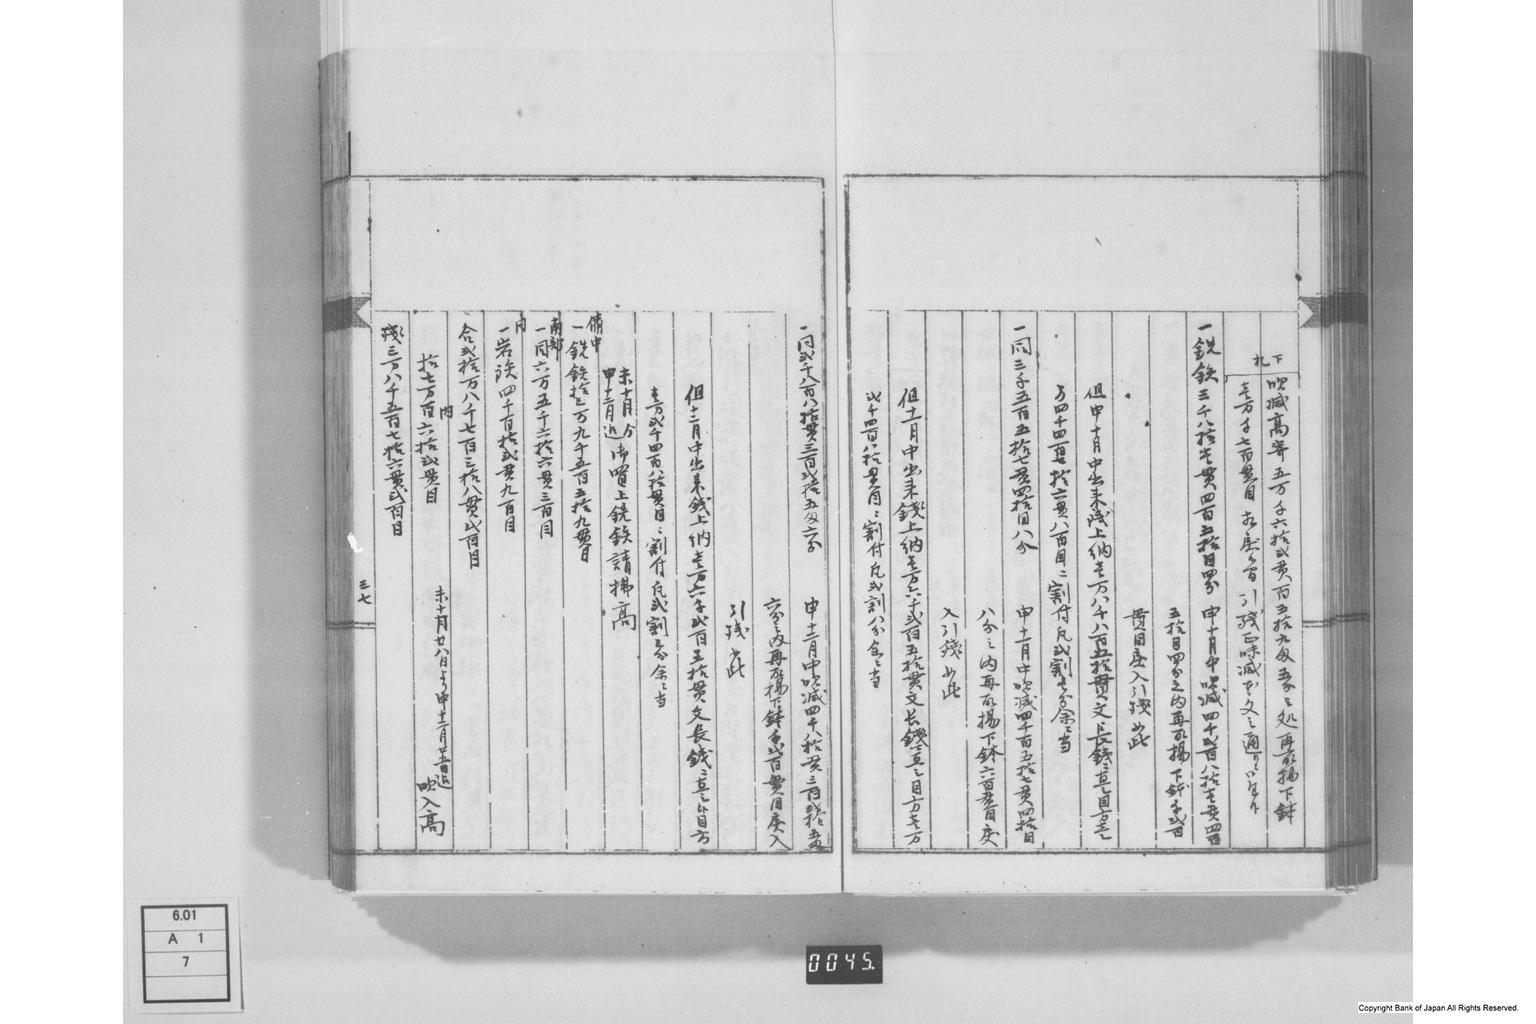 下ケ札
吹減高寄五万千六拾弐貫百五拾九匁五分之処再取揚下鉢
壱万千七百貫目 引残正味減 之通
一銑鉄三千八拾壱貫四百五拾目四分 申十月中吹減四千弐百八拾壱貫四百
五拾目四分之内再取揚下鉢千弐百
貫目戻入引残如此
但申十月中出来銭上納壱万八千八百五拾貫文長銭ニ直シ目方壱
万四千四百拾六貫八百目ニ割付凡弐割壱分余ニ当
一同三千五百五拾七貫四拾目八分 申十一月中吹減四千百五拾七貫四拾目
八分之内再取揚下鉢六百貫目戻
入引残如此
但十一月中出来銭上納壱万六千弐百五拾貫文長銭ニ直シ目方壱万
弐千四百八拾貫目ニ割付凡弐割八分余ニ当
一同弐千八百八拾貫三百弐拾五匁六分 申十二月中吹減四千八拾貫三百弐拾五匁
六分之内再取揚下鉢千弐百貫目戻入
引残如此
但十二月中出来銭上納壱万六千弐百五拾貫文長銭ニ直シ此目方
壱万弐千四百八拾貫目ニ割付凡弐割三分余ニ当
未十月分
申十二月迄 御買上銑鉄請払高
備中
一銑鉄拾三万九千五百五拾九貫目
南部
一同六万五千六拾六貫三百目
内
一岩鉄四千百拾弐貫九百目
合弐拾万八千七百三拾八貫弐百目
内
拾七万百六拾弐貫目 未十月廿八日より申十二月廿五日迄
吹入高
残三万八千五百七拾六貫弐百目
三七
6.01
A 1
7
0045.
Copyright Bank of Japan All Rights Reserved.